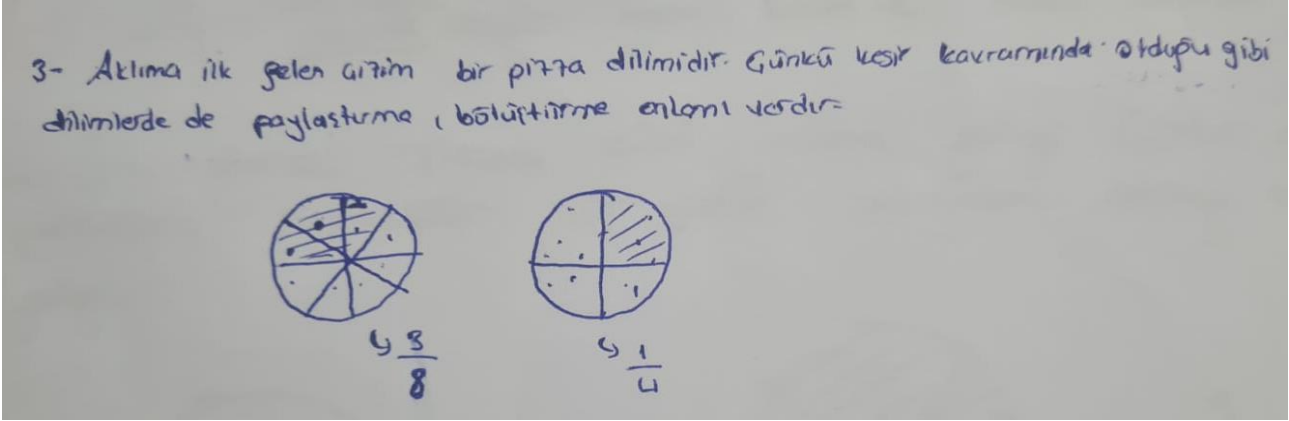 3- Aklıma ilk gelen çizim bir pizza dilimidir. Çünkü kesir kavramında olduğu gibi
dilimlerde de paylaştırma, bölüştürme anlamı vardır.
3/8
1/4